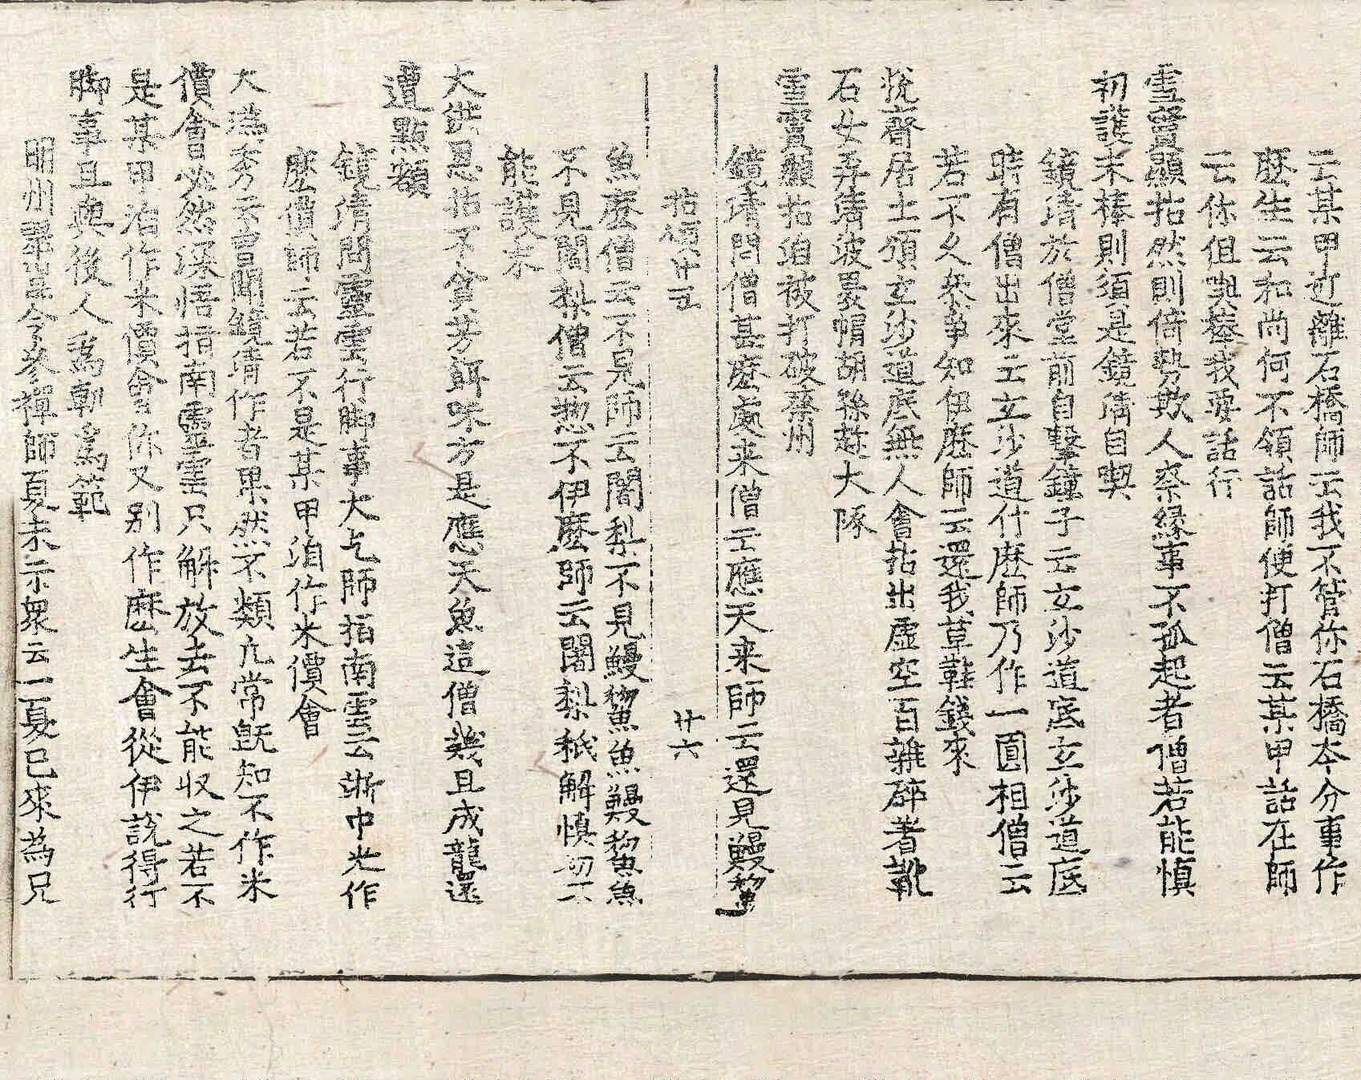 云某甲近離石橋師云我不管你石橋本分事作
麽生云和尚何不領話師便打僧云某甲話在師
云你但喫棒我要話行
雪竇顯拈然則倚勢欺人察緣事不孤起者僧若能慎
初護末棒則須是鏡清自喫
鏡清於僧堂前自擊鐘子云玄沙道底玄沙道底
時有僧出來云玄沙道什麽師乃作一圓相僧云
若不久參爭知伊麽師云還我草鞋錢來
悅齋居士頌玄沙道底無人會拈出虛空百雜碎著靴
石女弄清波畏帽胡孫趂大隊
雪竇顯拈洎被打破蔡州
鏡清問僧甚麽處来僧云應天来師云還見鰻𮫬
拈頌廿五 廿六
魚麽僧云不見師云闍梨不見鰻𮫬魚魚鰻𮫬魚
不見闍梨僧云惣不伊麽師云闍梨秖解慎初不
能護末
大洪恩拈不貪芳餌味方是應天魚這僧幾且成龍還
遭點額
鏡清問靈雲行脚事大乞師指南雲云浙中米作
麽價師云若不是某甲洎作米價會
大潙秀云曾聞鏡清作者果然不類凢常旣知不作米
價會必然深悟指南靈雲只解放去不能收之若不
是某甲洎作米價會你又别作麽生會從伊說得行
脚事且與後人爲朝爲範
明州翠嵒令參禪師夏末示衆云一夏已來為兄